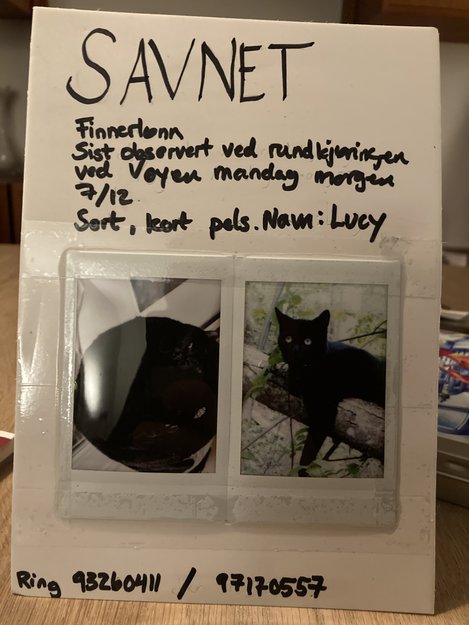 SAVNET
Finnerlønn
Sist observert ved rundkjøringen
ved Vøyen mandag morgen
7/12
Sort, kort pels. Navn: LUCY
Ring 93260411 / 97170557